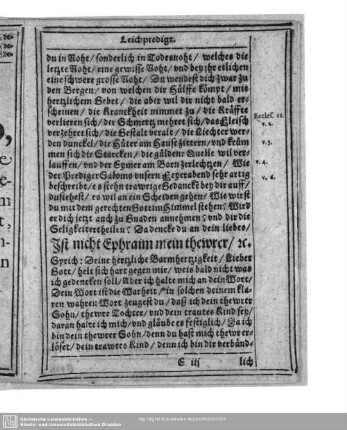 Leichpredigt.
du in Noht/ sonderlich in Todesnoht/ welches die
letzte Noht/ eine gewisse Noht/ und bey jhr etlichen
eine schwere grosse Noht/ Du wendest dich zwar zu
den Bergen/ von welchen dir Hülffe kömpt/ mit
hertzlichem Gebet/ die aber wil dir nicht bald er-
scheinen/ die Kranckheit nimmet zu/ die Kräffte
verlieren sich/ der Schmertz mehret sich/ das Fleisch
verzehret sich/ die Gestalt veralt/ die Liechter wer-
den dunckel/ die Hüter am Hause zittern/ und krüm-
men sich die Starcken/ die güldene Quelle wil ver-
lauffen/ und der Eymer am Born zerlechtzen/ Wie
der Prediger Salomo unsern Feyrabend sehr artig
beschreibt/ es stehn trawrige Gedancke bey dir auff/
du siehest/ es wil an ein Scheiden gehen/ Wie wirst
du mit dem gerechten Gott im Himmel stehen? Wird
er dich jetzt auch zu Gnaden annehmen? und dir die
Seligkeit ertheilen? Da dencke du an dein liebes/
Ist nicht Ephraim mein thewrer/ ꝛc.
Sprich: Deine hertzliche Barmhertzigkeit/ Lieber
Gott/ helt sich hart gegen mir/ weis bald nicht was
ich gedencken soll/ Aber ich halte mich an dein Wort/
Dein Wort ist die Warheit/ in solchen deinem kla-
ren wahren Wort zeugest du/ daß ich dein thewrer
Sohn/ thewre Tochter/ und dein trautes Kind sey/
daran halte ich mich/ und gläube es festiglich/ Ja ich
bin dein thewrer Sohn/ denn du hast mich thewr er-
löset/ dein trawtes Kind/ denn ich bin dir verbünd-
E iij
lich
Eccles. 12.
v. 2.
v. 3.
v. 4.
v. 6.